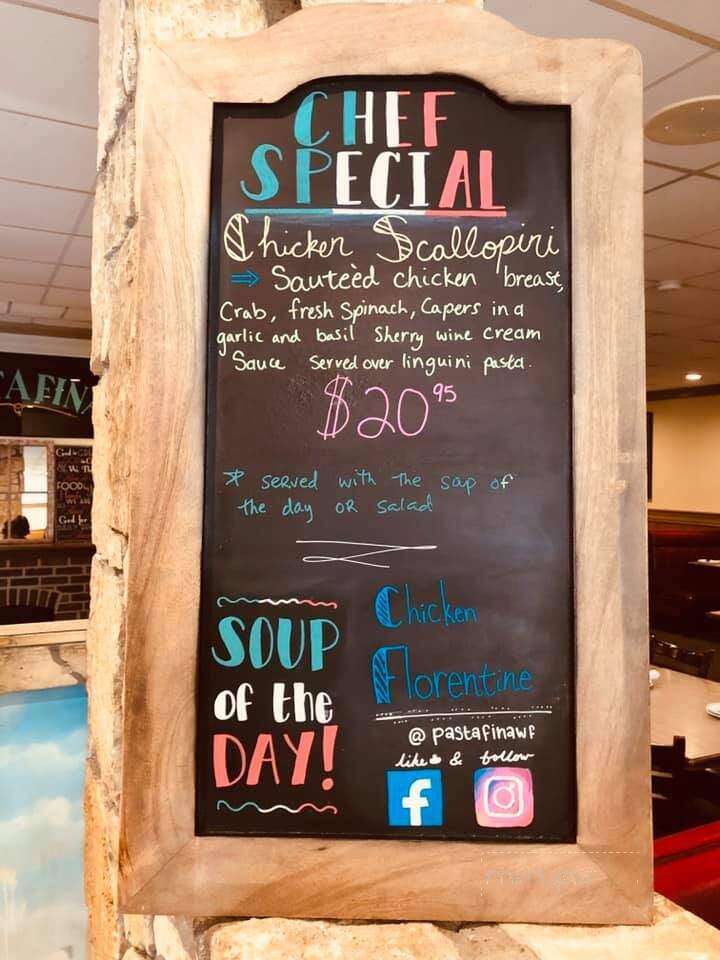 CHEF
SPECIAL
Chicken Scallopini
⇒ Sauteèd chicken breast,
Crab, fresh Spinach, Capers in a
garlic and basil Sherry wine cream
Sauce Served over linguini pasta.
$20.95
* served with the sop of
the day OR Salad
SOUP
of the
DAY!
Chicken
Florentine
@pastafinawf
like & follow
f
AFINA